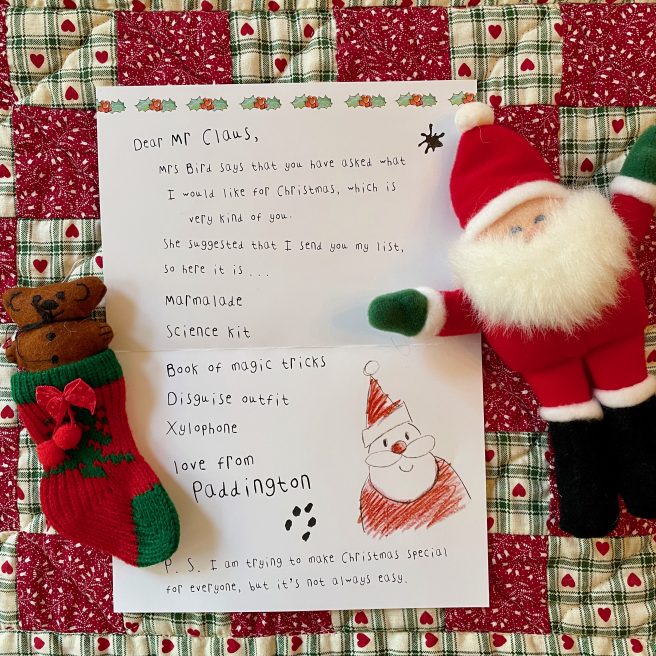 Dear Mr Claus,
Mrs Bird says that you have asked what
I would like for Christmas, which is
very kind of you.
She suggested that I send you my list,
so here it is ...
Marmalade
Science kit
Book of magic tricks
Disguise outfit
Xylophone
love from
Paddington
P. S. I am trying to make Christmas special
for everyone, but it's not always easy.